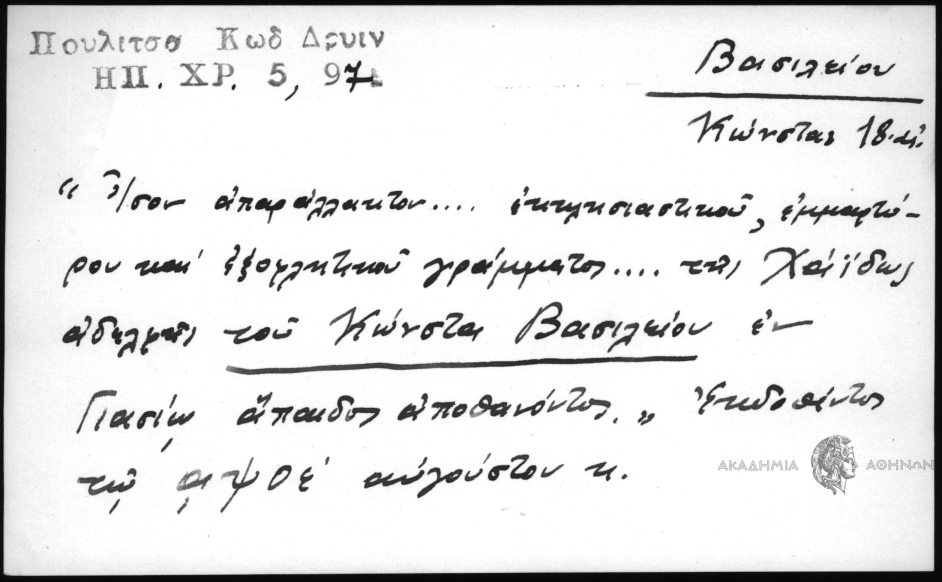 Πουλιτσα Κωδ Δρυιν
ΗΠ. ΧΡ. 5, 97
Βασιλείου
Κώνστας 18. αἰ.
"Ἴσον ἀπαράλλακτον.... ἐκκλησιαστικοῦ, ἐμμαρτύ-
ρου καὶ ἐξοφλητικοῦ γράμματος.... τῆς Χάϊδως
ἀδελφῆς τοῦ Κώνστα Βασιλείου ἐν
Γιασίῳ ἄπαιδος ἀποθανόντος„ Ἐκδοθέντος
τῷ αψοέ αὐγούστου κ.
ΑΚΑΔΗΜΙΑ ΑΘΗΝΩΝ